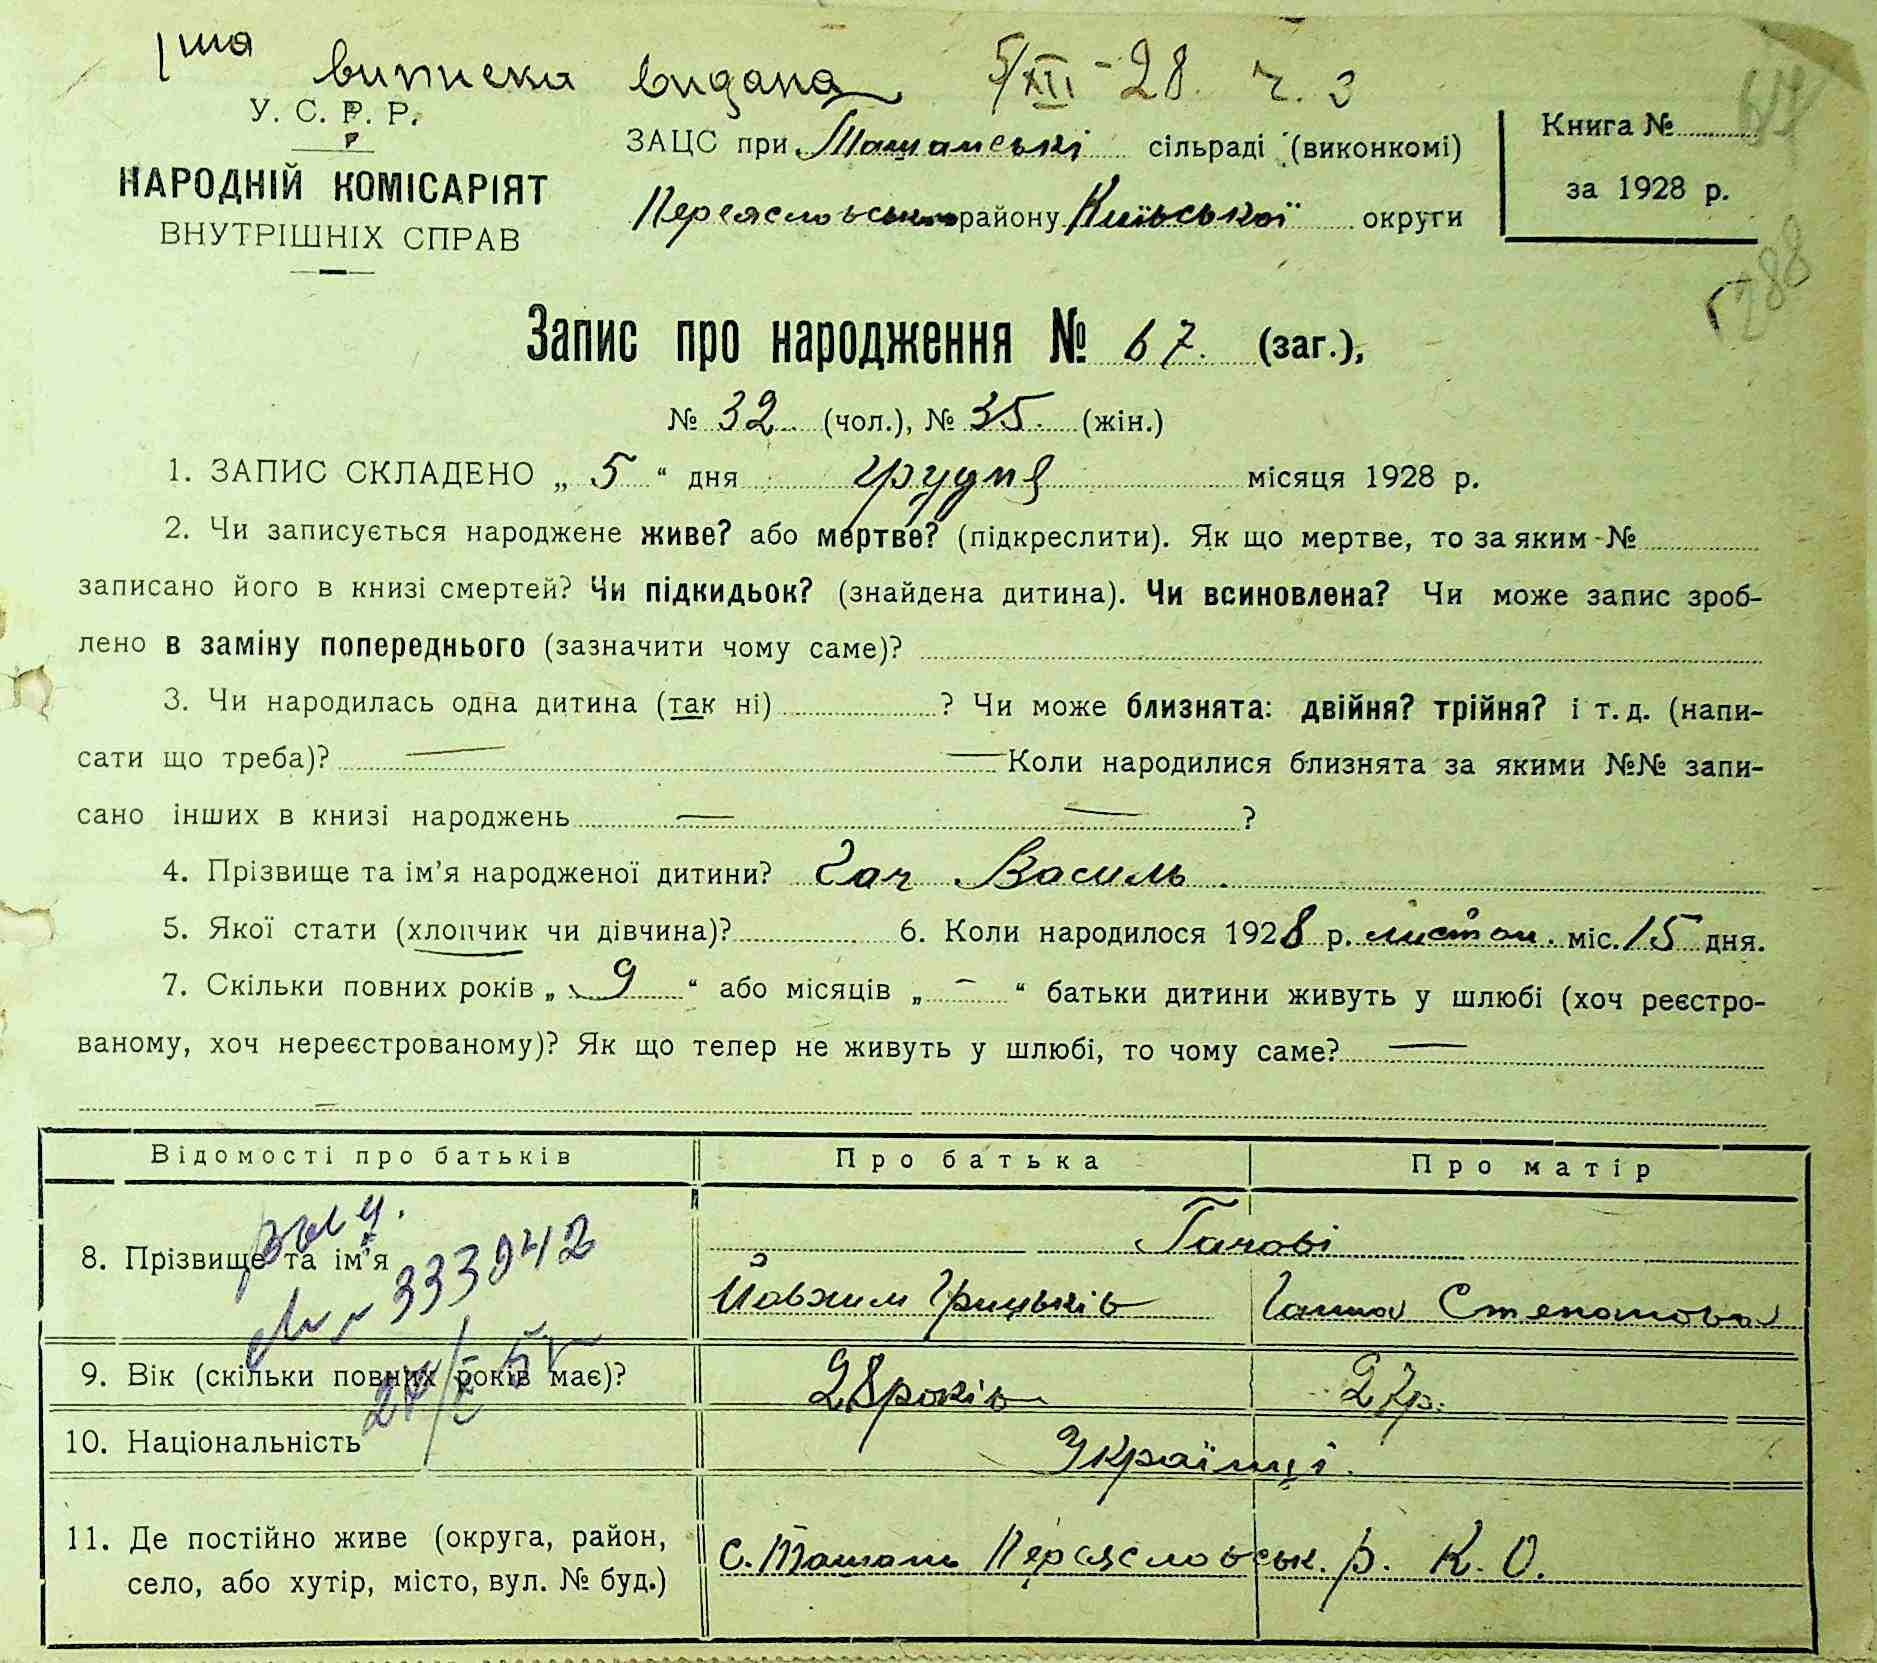 1ша виписка видана 5/XII-28. ч. 3
У. С. Р. Р.
НАРОДНІЙ КОМІСАРІЯТ
ВНУТРІШНІХ СПРАВ
ЗАЦС при Ташанські сільраді (виконкомі)
Переяславськ району Київської округи
Книга №
за 1928 р.
288
Запис про народження № 67. (заг.),
№ 32 (чол.), № 35. (жін.)
1. ЗАПИС СКЛАДЕНО „ 5 “ дня грудня місяця 1928 р.
2. Чи записується народжене живе? або мертве? (підкреслити). Як що мертве, то за яким №
записано його в книзі смертей? Чи підкидьок? (знайдена дитина). Чи всиновлена? Чи може запис зроб-
лено в заміну попереднього (зазначити чому саме)?
3. Чи народилась одна дитина (так ні) ? Чи може близнята: двійня? трійня? і т. д. (напи-
сати що треба)? — — Коли народилися близнята за якими №№ запи-
сано інших в книзі народжень — — ?
4. Прізвище та ім’я народженої дитини? Гач Василь.
5. Якої стати (хлопчик чи дівчина)? 6. Коли народилося 1928 р. листоп. міс. 15 дня.
7. Скільки повних років „ 9 “ або місяців „ - “ батьки дитини живуть у шлюбі (хоч реєстро-
ваному, хоч нереєстрованому)? Як що тепер не живуть у шлюбі, то чому саме? —
Відомості про батьків Про батька Про матір
8. Прізвище та ім’я Гачові
Йовхим Грицьків Ганна Степанова
333942
9. Вік (скільки повних років має)? 28 років 27р.
10. Національність Українці.
11. Де постійно живе (округа, район,
село, або хутір, місто, вул. № буд.)
с. Ташань Переяславськ. р. К. О.